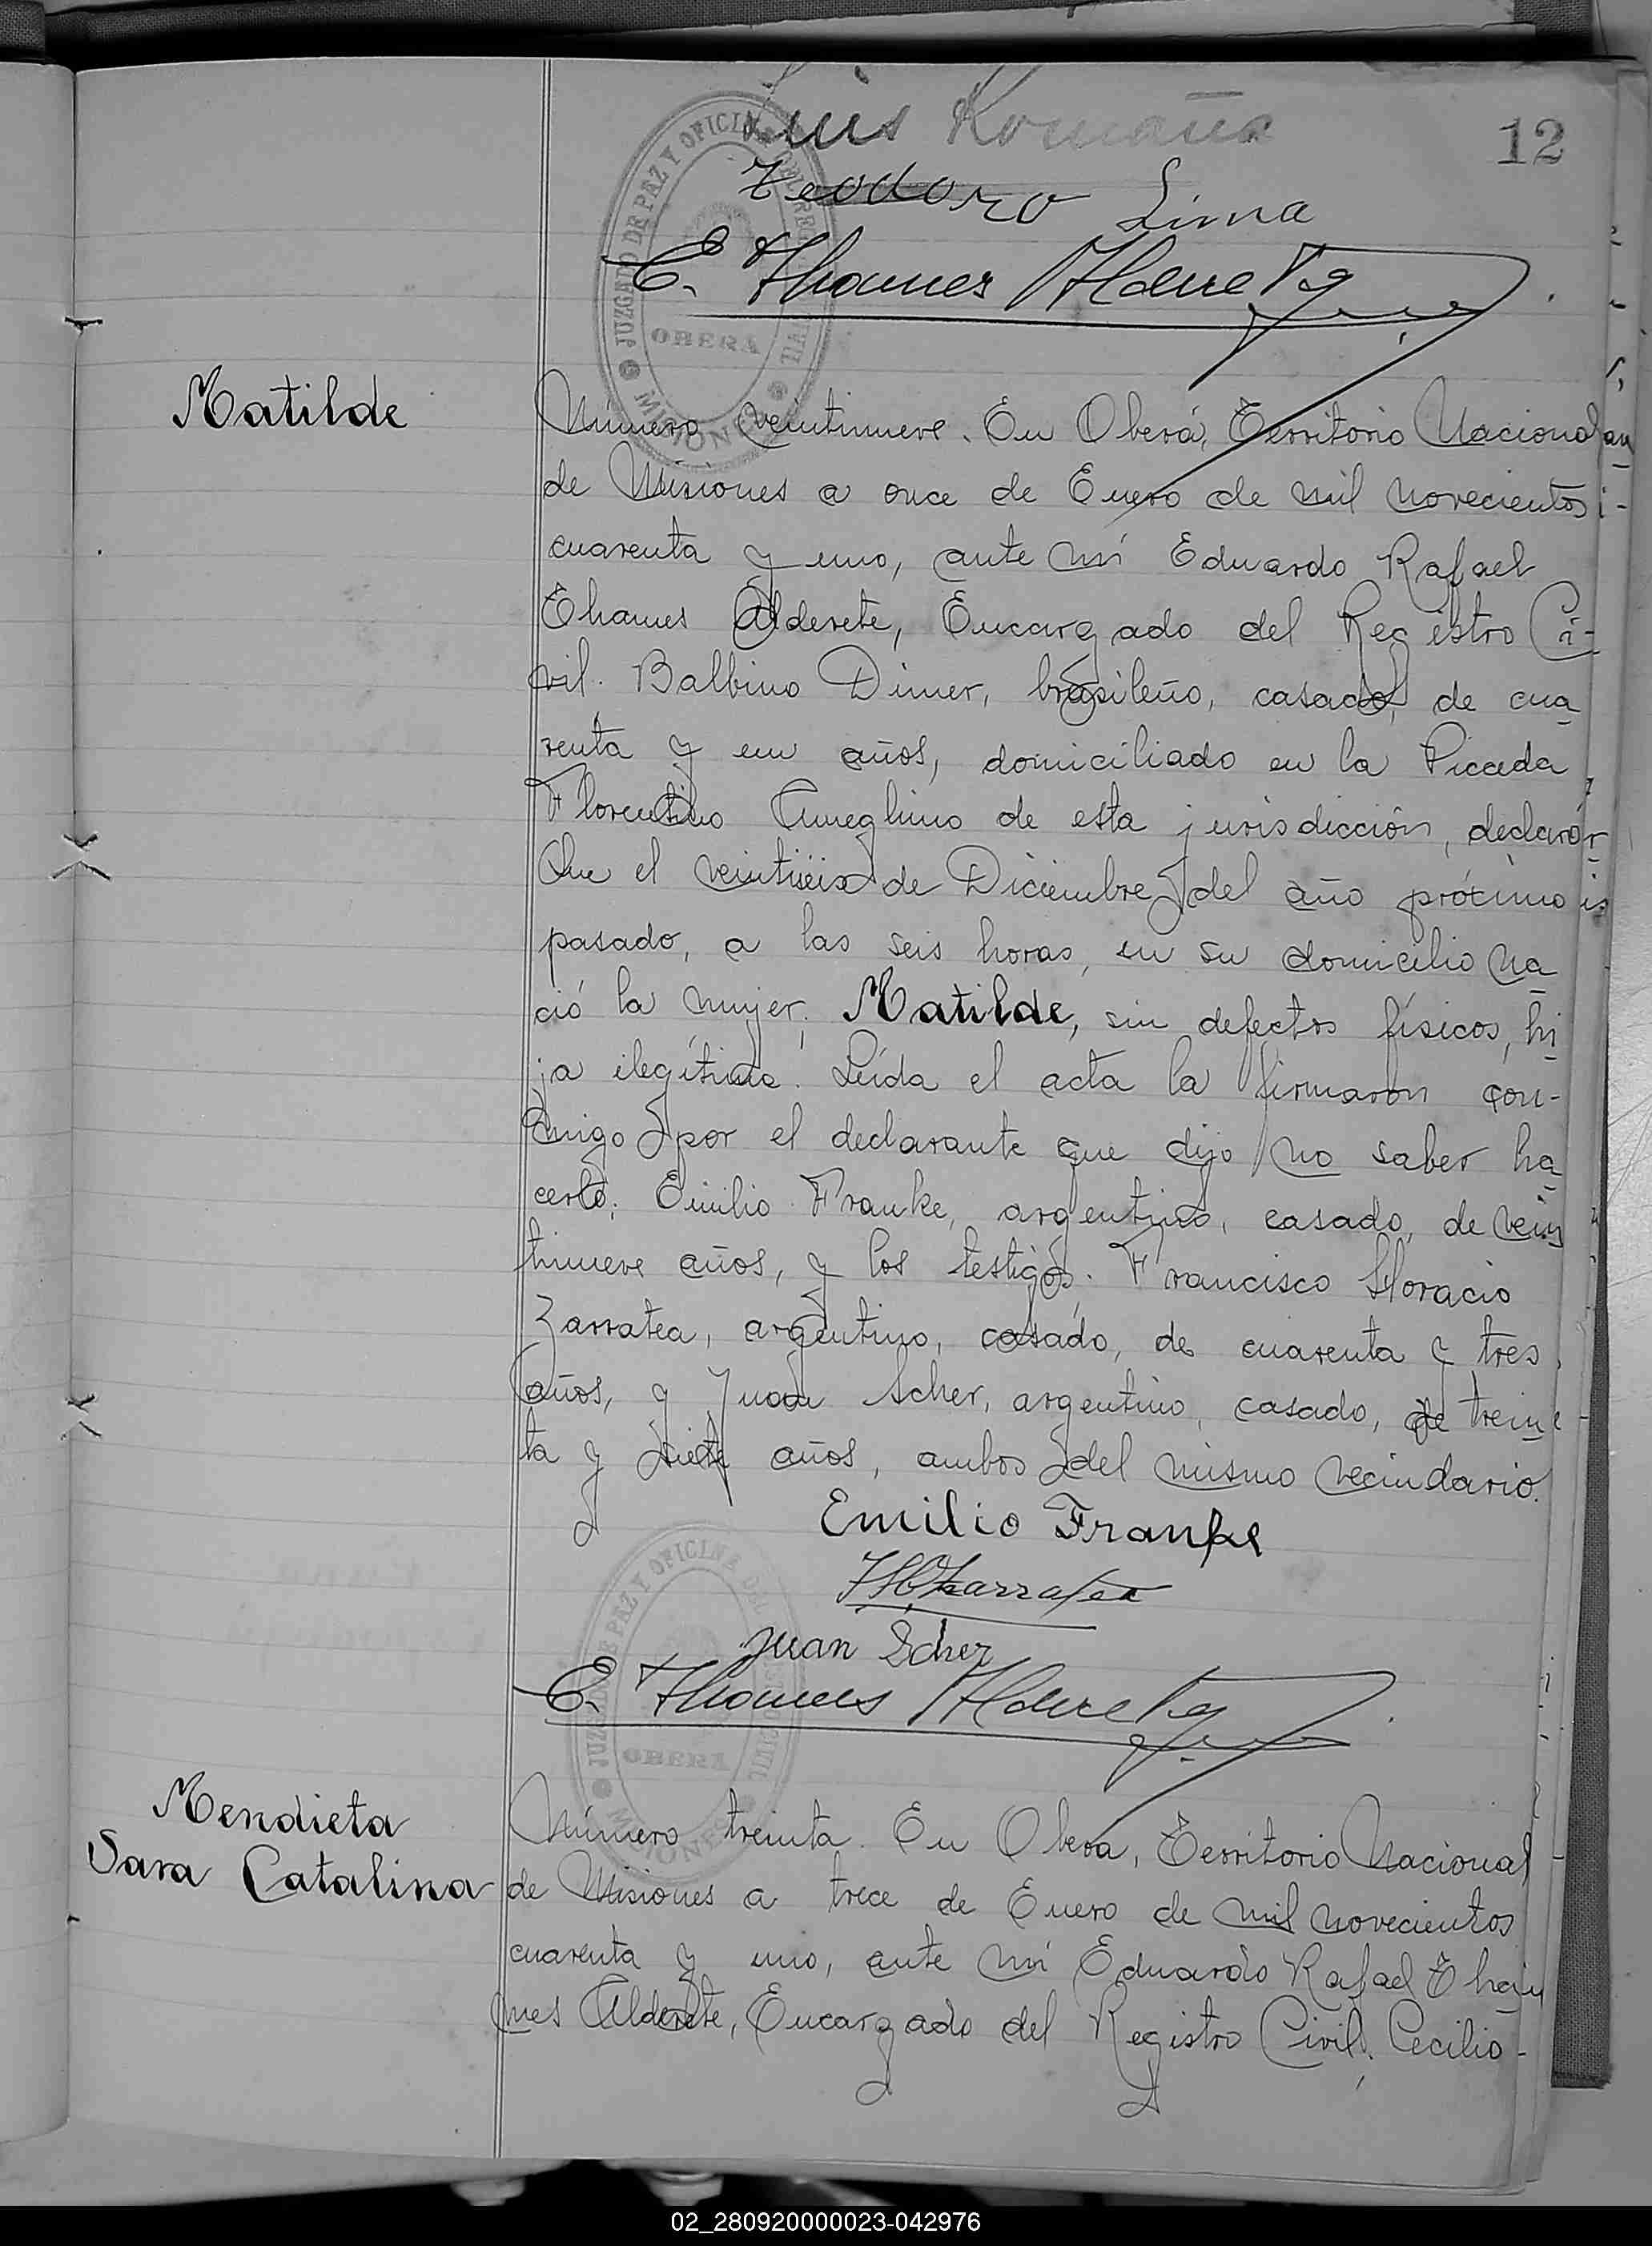 Luis Romaña
12
Teodoro Lima
E. Thames Alderete
JUZGADO DE PAZ Y OFICINA DEL REGISTRO CIVIL
OBERA
MISIONES
Matilde
Número veintinueve. En Oberá, Territorio Nacional
de Misiones a once de Enero de mil novecientos
cuarenta y uno, ante mí Eduardo Rafael
Thames Alderete, Encargado del Registro Ci-
vil. Balbino Dimer, brasileño, casado, de cua
renta y un años, domiciliado en la Picada
Florentino Ameghino de esta jurisdicción, declaró:
Que el veintiseis de Diciembre del año próximo
pasado, a las seis horas, en su domicilio na
ció la mujer: Matilde, sin defectos físicos, hi
ja ilegítima. Leída el acta la firmaron con-
migo por el declarante que dijo no saber ha
cerlo; Emilio Franke, argentino, casado, de vein
tinueve años, y los testigos: Francisco Horacio
Zarratea, argentino, casado, de cuarenta y tres
años, y Juan Scher, argentino, casado, de trein
ta y siete años, ambos del mismo vecindario.
Emilio Franke
FHZarratea
Juan Scher
E. Thames Alderete
JUZGADO DE PAZ Y OFICINA DEL REGISTRO CIVIL
OBERA
MISIONES
Mendieta
Sara Catalina
Número treinta. En Obera, Territorio Nacional
de Misiones a trece de Enero de mil novecientos
cuarenta y uno, ante mí Eduardo Rafael Tha
mes Alderete, Encargado del Registro Civil, Cecilio
02_280920000023-042976